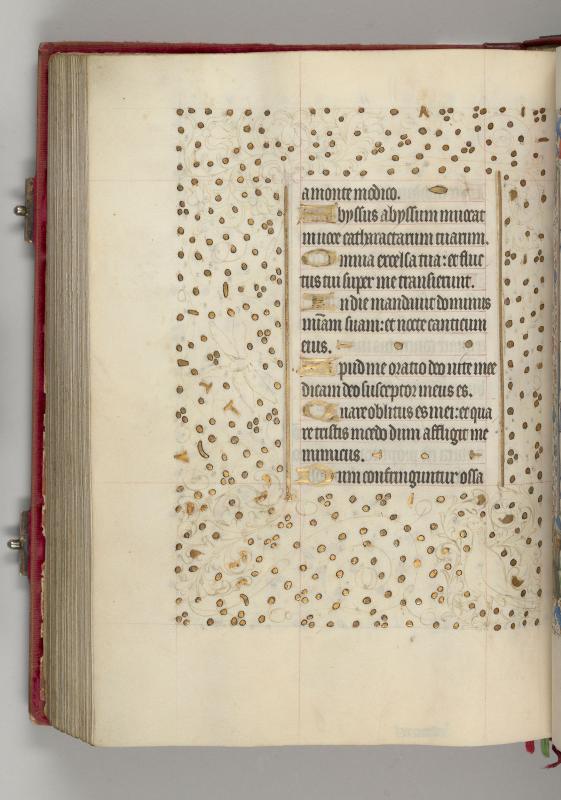 a monte modico.
Abyssus abyssum invocat
in voce catharactarum tuarum.
Omnia excelsa tua: et fluc
tus tui super me transierunt.
In die mandavit dominus
mīam suam: et nocte canticum
eius.
Apud me oratio deo vite mee
dicam deo susceptor meus es.
Quare oblitus es mei: et qua
re tristis incedo dum affligit me
inimicus.
Dum confringuntur ossa